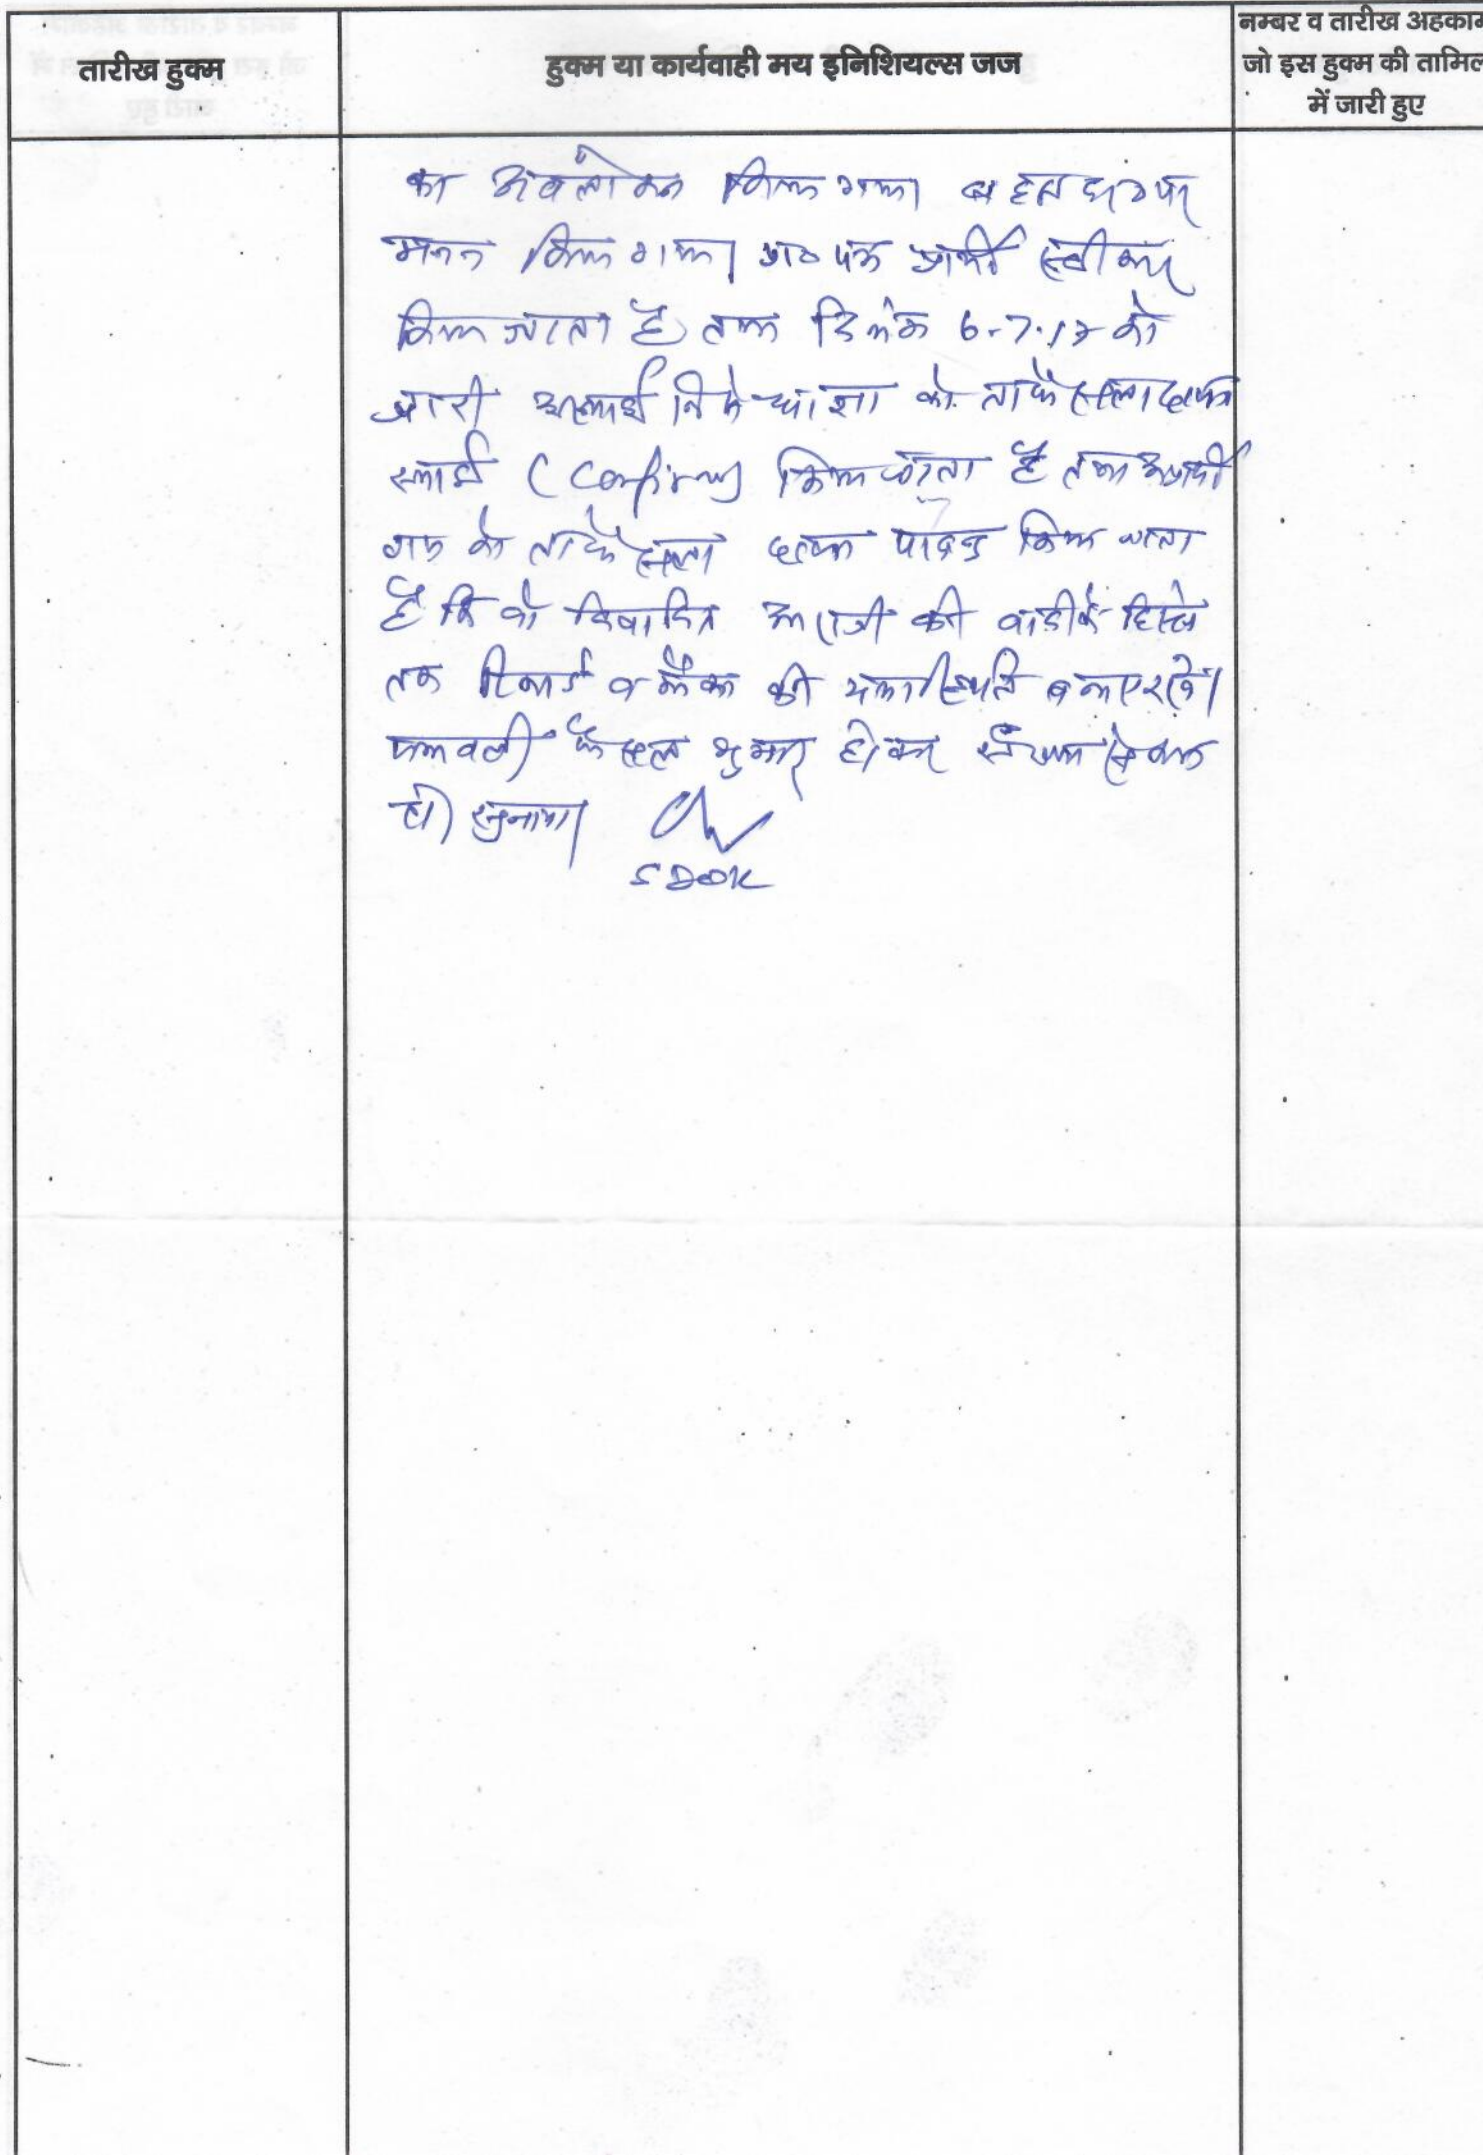 तारीख हुक्म
हुक्म या कार्यवाही मय इनिशियल्स जज
नम्बर व तारीख अहकाम
जो इस हुक्म की तामिल
में जारी हुए
का अवलोकन किया गया। बहस पर
मनन किया गया। प्रा० पत्र प्रार्थी स्वीकार
किया जाता है तथा दिनांक 6-7-17 को
जारी अस्थाई निषेधाज्ञा को ताफैसला दावा
स्थाई (Confirm) किया जाता है तथा अप्रार्थी
गण को ताफैसला दावा पाबन्द किया जाता
है कि वो विवादित आराजी की वादी के हिस्से
तक रिकार्ड व मौका की यथास्थिति बनाए रखें।
पत्रावली फैसल शुमार होकर
हो। सुनाया।
SDOK